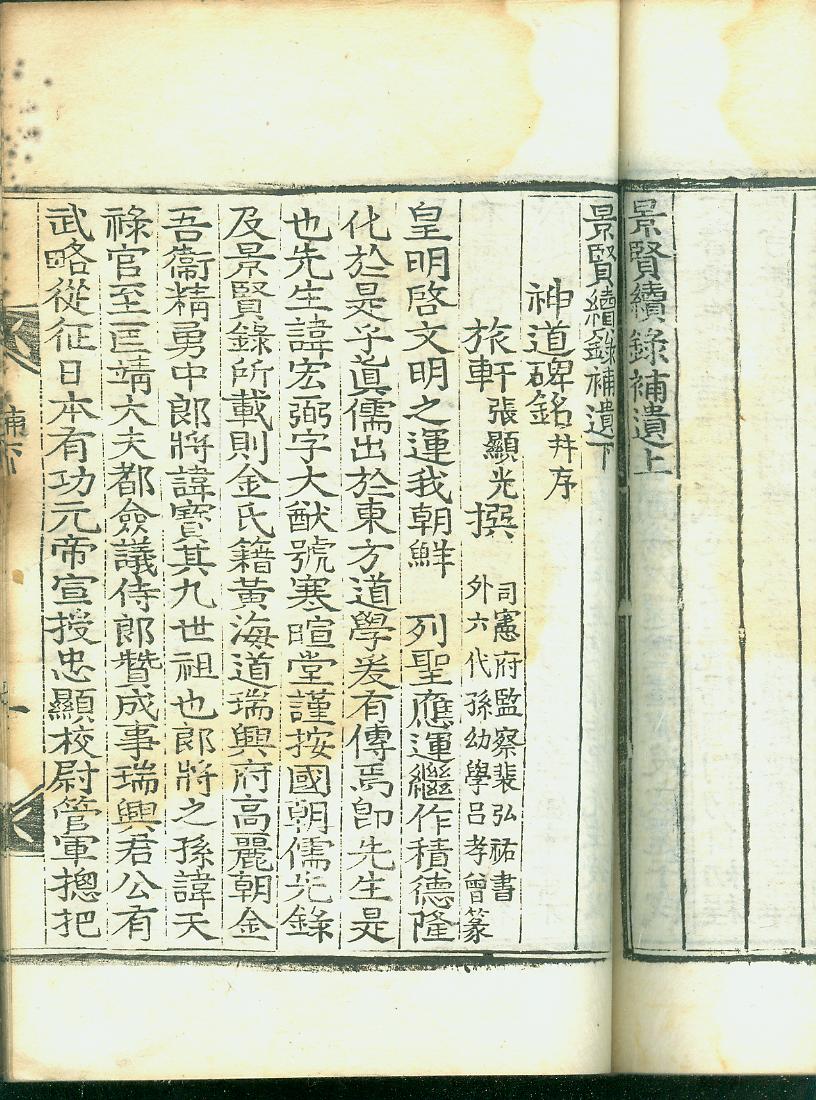 景賢續錄補遺上
景賢續錄補遺下
神道碑銘 幷序
旅軒 張顯光 撰 司憲府監察裴弘祐書
外六代孫幼學呂孝曾篆
皇明啓文明之運我朝鮮 列聖應運繼作積德隆
化於是乎眞儒出於東方道學爰有傳焉卽先生是
也先生諱宏弼字大猷號寒暄堂謹按國朝儒先錄
及景賢錄所載則金氏籍黃海道瑞興府高麗朝金
吾衞精勇中郞將諱寶其九世祖也郞將之孫諱天
祿官至匡靖大夫都僉議侍郞贊成事瑞興君公有
武略從征日本有功元帝宣授忠顯校尉管軍摠把
補下
一